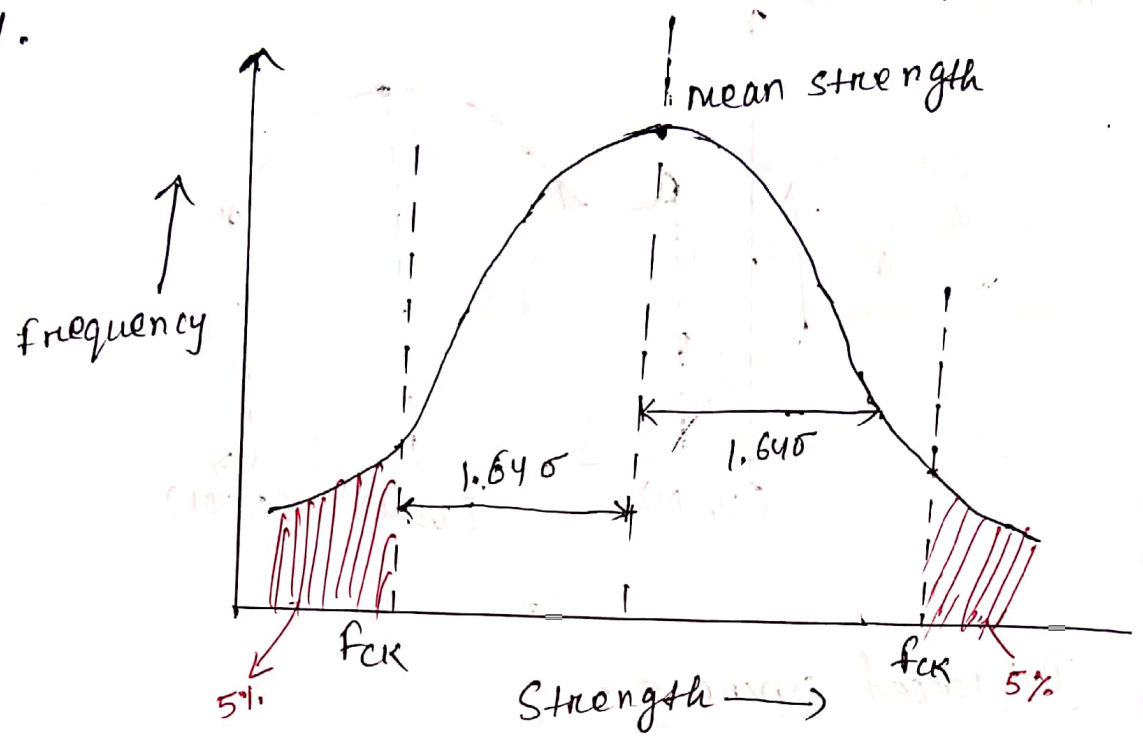 1.
mean strength
frequency
1.64 σ
1.64σ
fck
fck
5%
5%
Strength